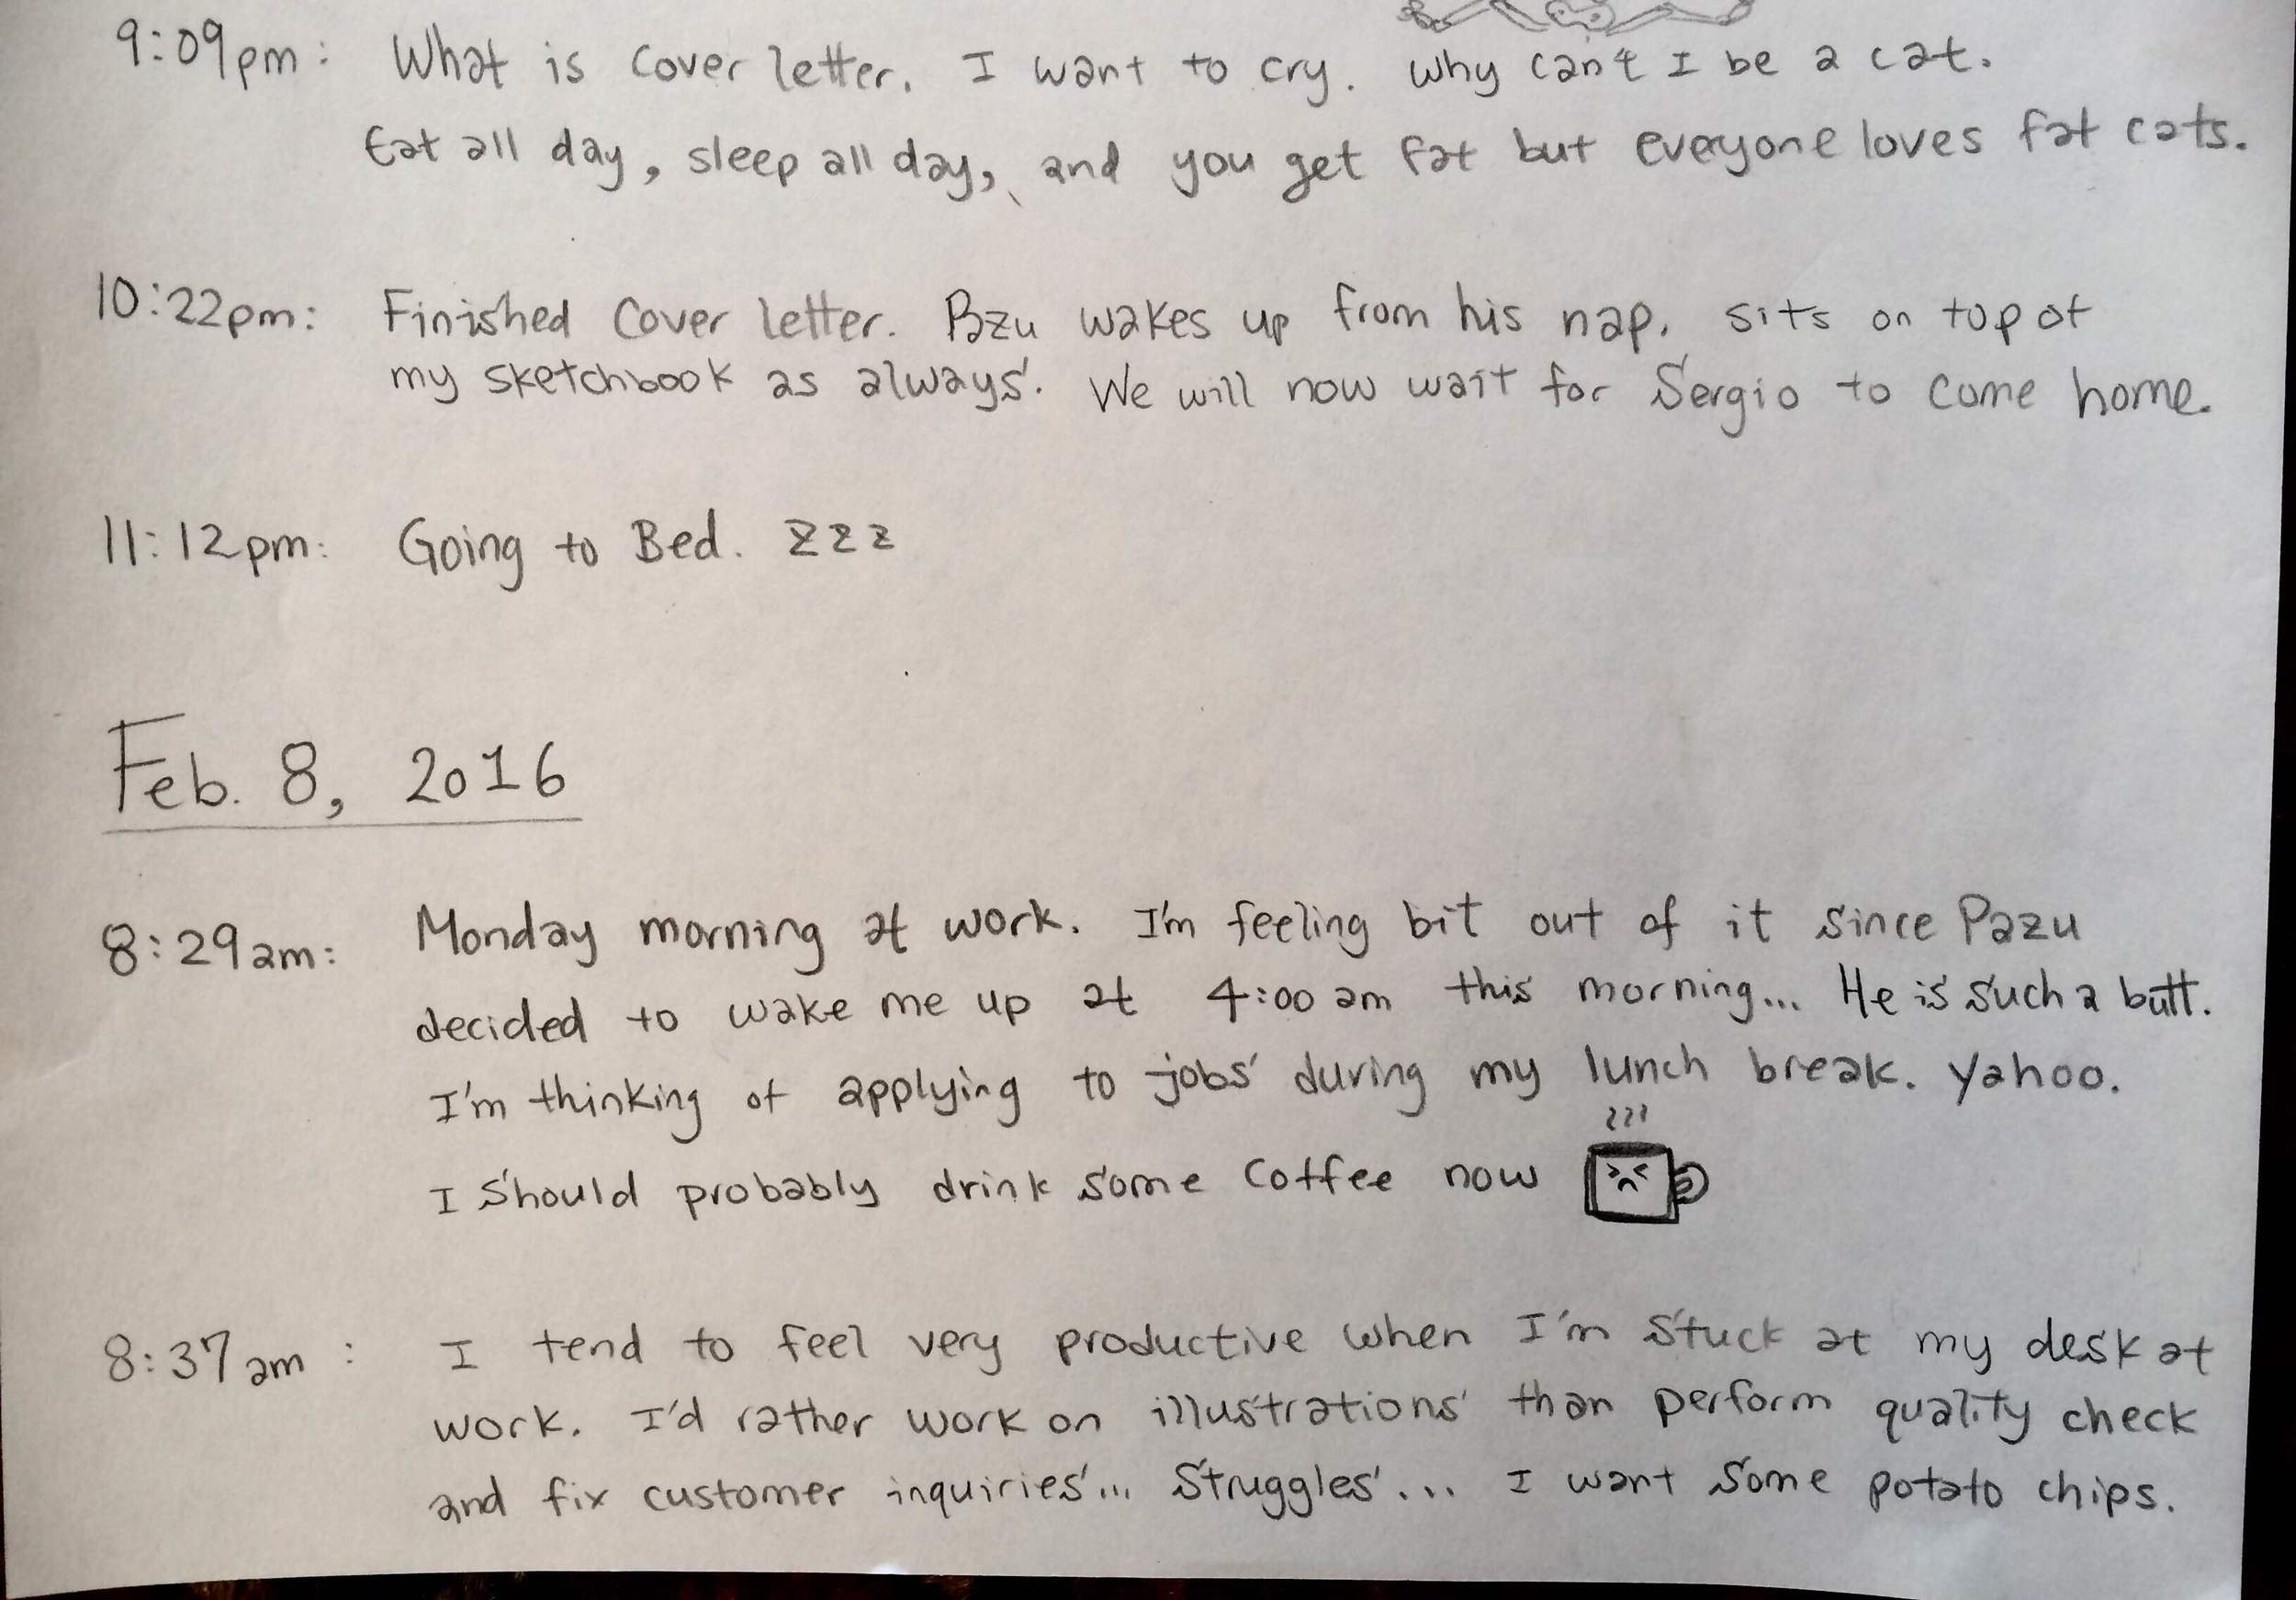 9:09pm: What is cover letter. I want to cry. Why can't I be a cat.
Eat all day, sleep all day, and you get fat but everyone loves fat cats.
10:22pm: Finished Cover letter. Pazu wakes up from his nap, sits on top of
my sketchbook as always. We will now wait for Sergio to come home.
11:12pm: Going to Bed. zzz
Feb. 8, 2016
8:29am: Monday morning at work. I'm feeling bit out of it since Pazu
decided to wake me up at 4:00 am this morning... He is such a butt.
I'm thinking of applying to jobs during my lunch break. Yahoo.
I should probably drink some coffee now
8:37am: I tend to feel very productive when I'm stuck at my desk at
work. I'd rather work on illustrations than perform quality check
and fix customer inquiries... Struggles... I want some potato chips.